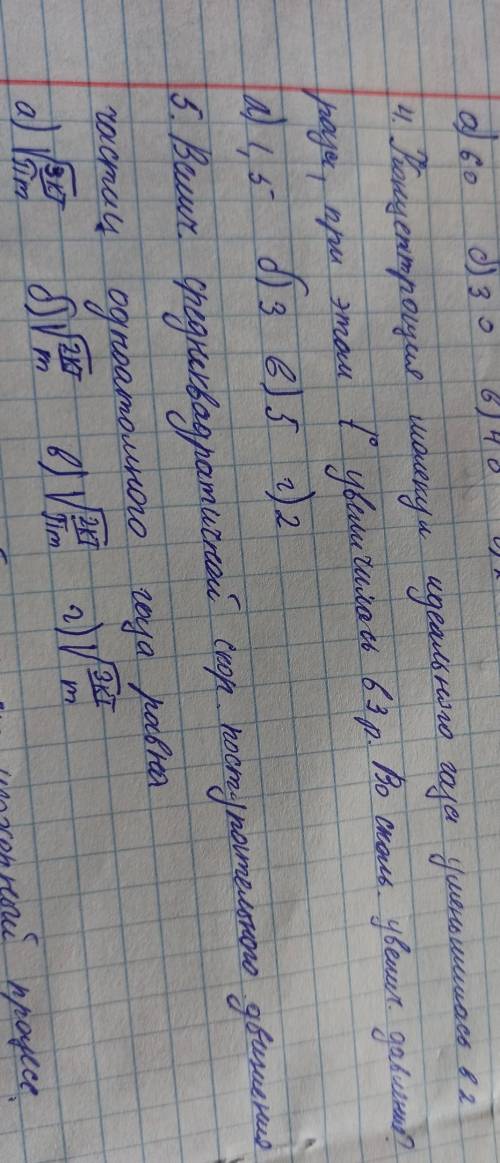 а) 60 б) 30 в) 40
4. Концентрация молекул идеального газа уменьшилась в 2
раза, при этом t° увеличилась в 3 р. Во сколь. увелич. давление?
а) 1,5 б) 3 в) 5 г) 2
5. Велич. средниквадратичной скор. поступательного движения
частиц одноатомного газа равна
а) √3kT/πm б) √2kT/m в) √2kT/πm г) √3kT/m
процесс